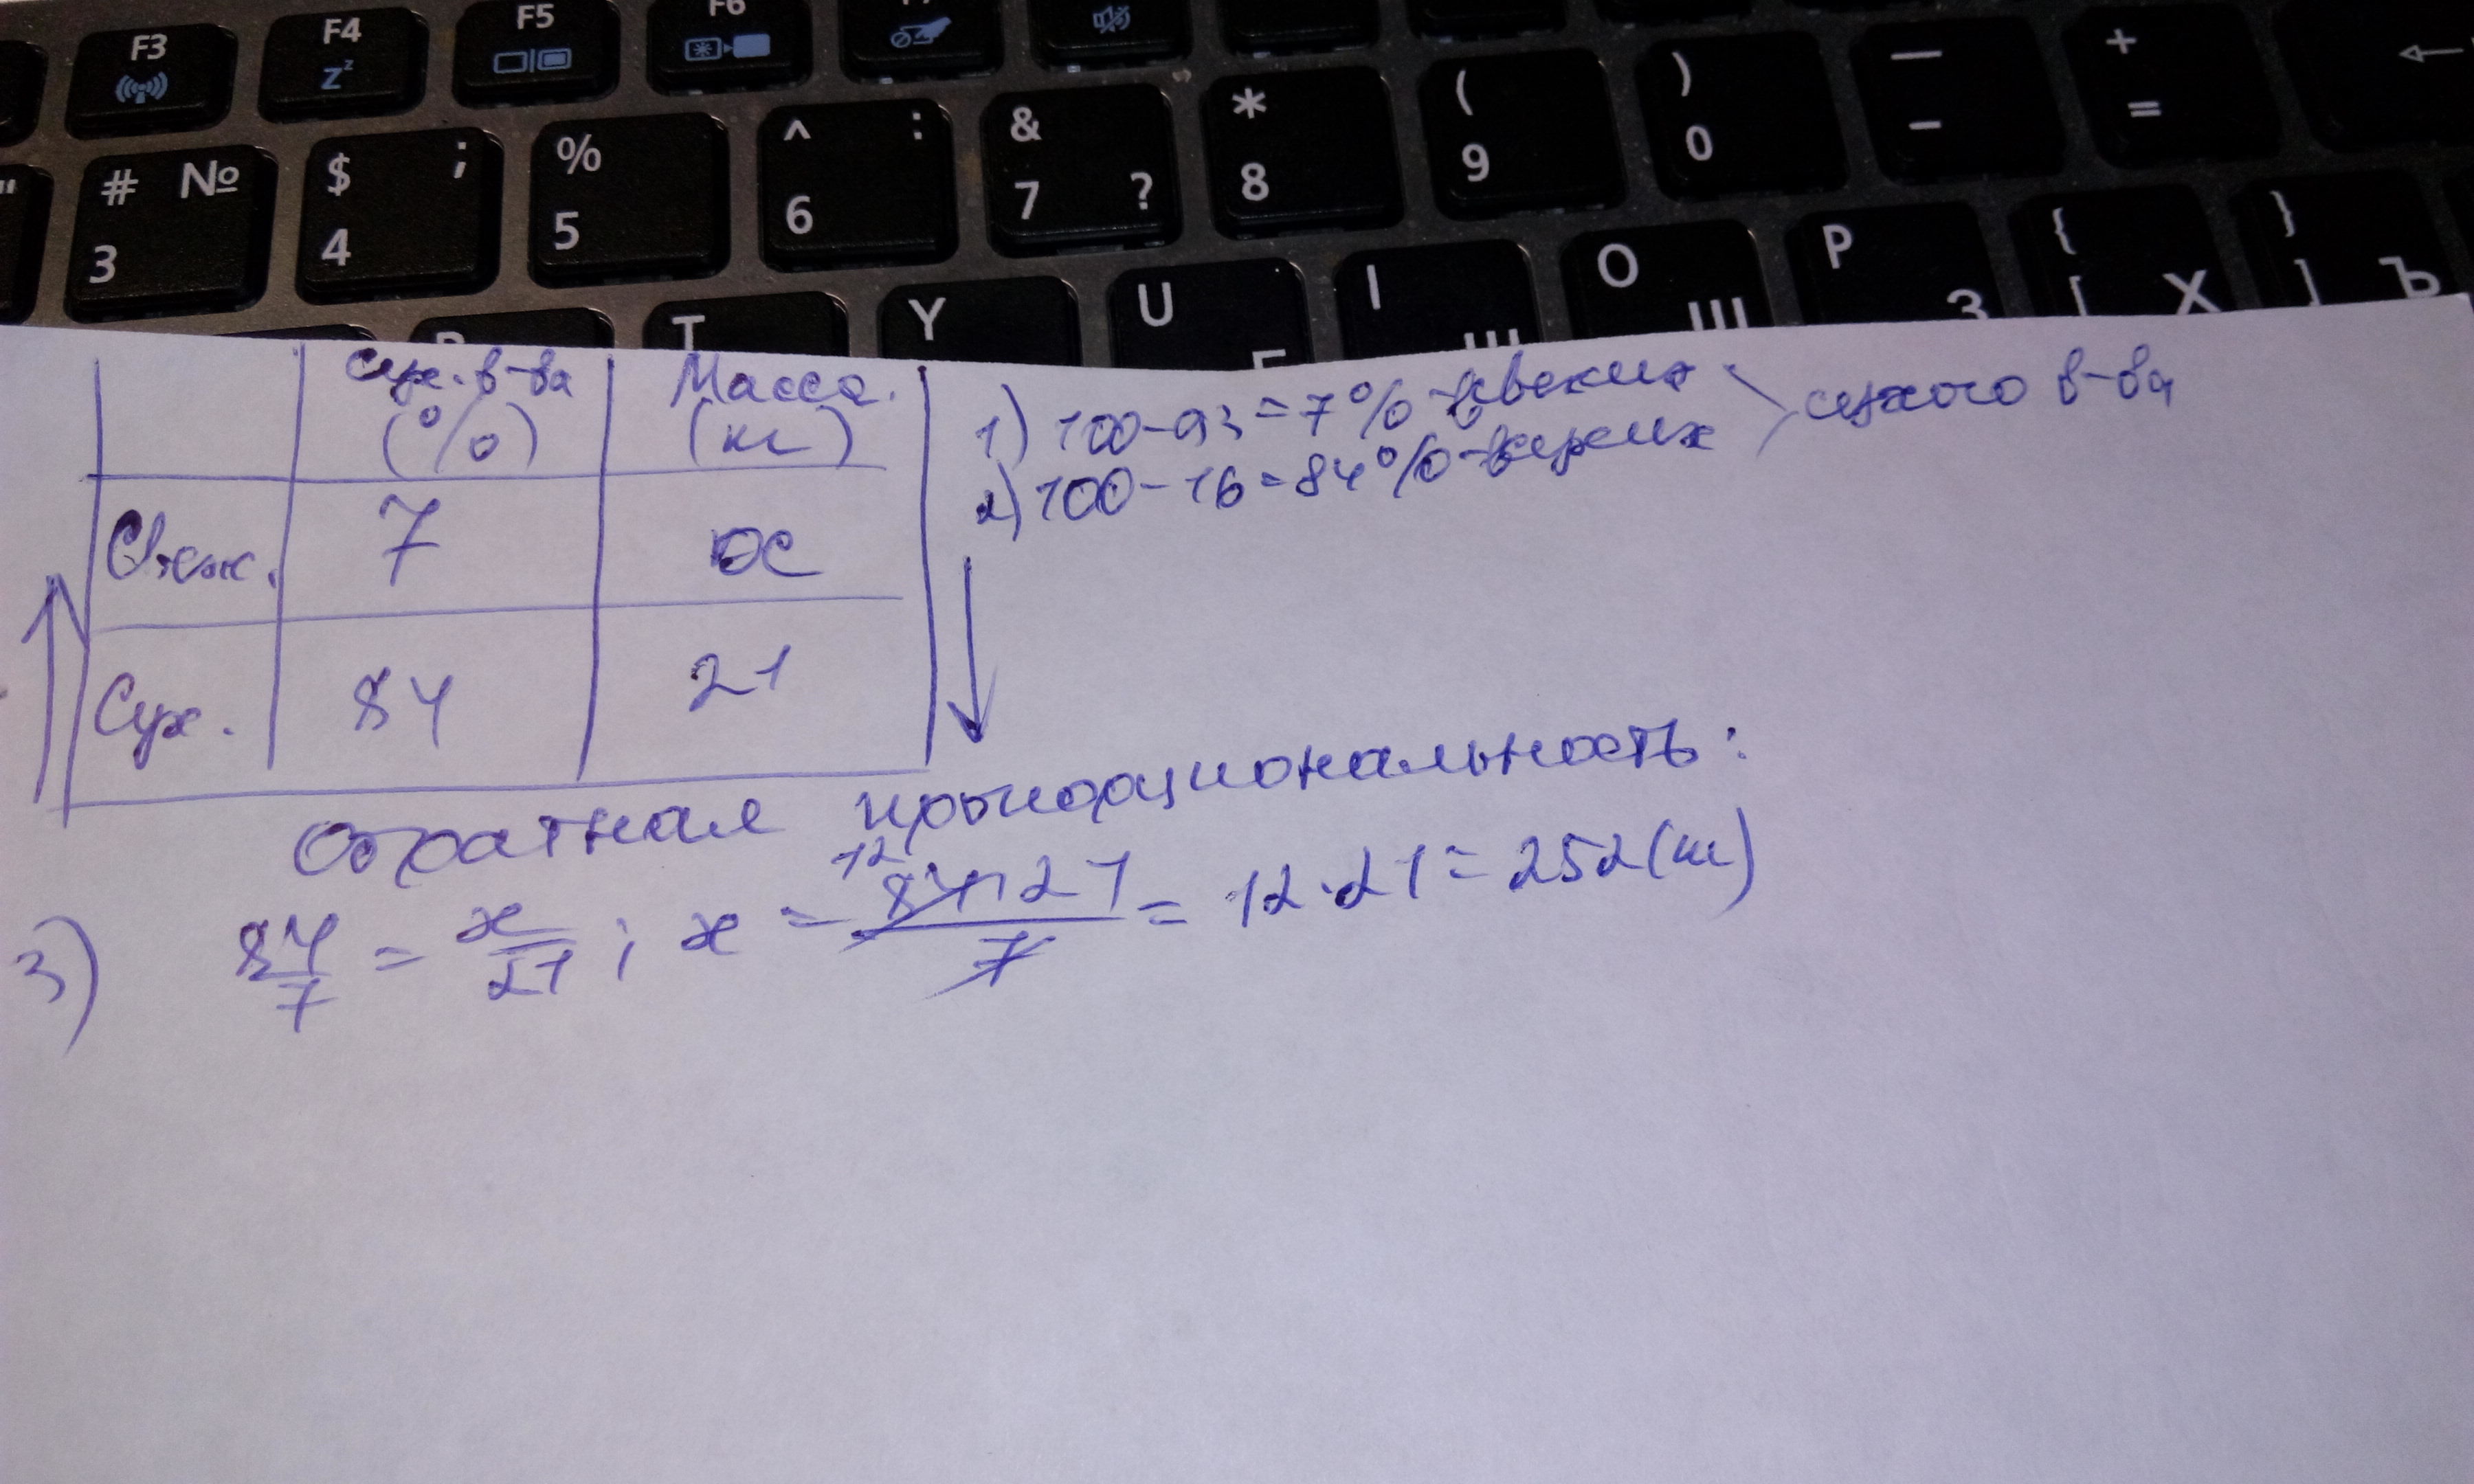 F3 F4 F5 F6
Zz
# № $ ; % ^ : & * ( ) — +
3 4 5 6 7 ? 8 9 0 - =
T Y U I O P { }
З [ Х ] Ъ
сух. в-ва (%) Масса (кг)
Свеж. 7 x
Сух. 84 21
1) 100-93=7% -в свежих
2) 100-16=84% -в сухих
сухого в-ва
Обратная пропорциональность:
3) 84/7 = x/21 ; x = 84·21/7 = 12·21=252(кг)
12